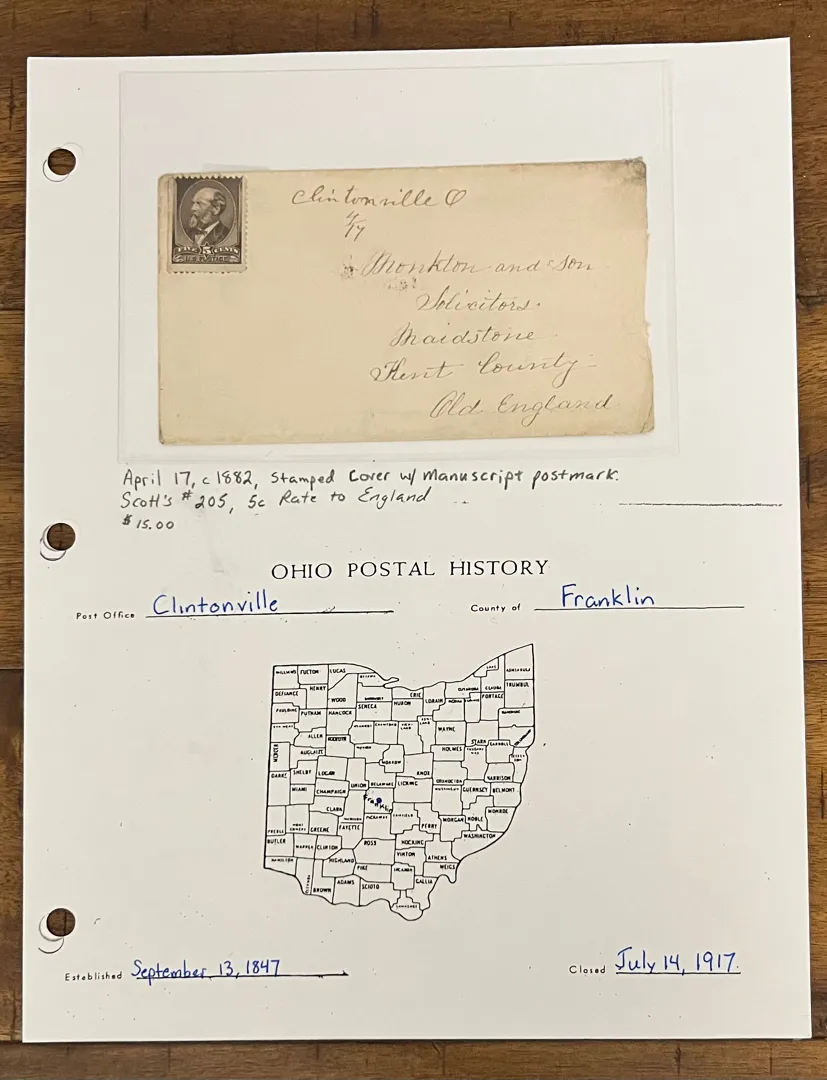 FIVE 5 CENTS
U.S. POSTAGE
Clintonville O
4/17
Monkton and Son
Solicitors.
Maidstone
Kent County
Old England
April 17, c 1882, Stamped Cover w/ Manuscript postmark.
Scott's #205, 5c Rate to England
$15.00
OHIO POSTAL HISTORY
Post Office Clintonville County of Franklin
WILLIAMS FULTON LUCAS LAKE ASHTABULA
DEFIANCE HENRY WOOD ERIE LORAIN PORTAGE TRUMBULL
PAULDING PUTNAM HANCOCK SENECA HURON
ALLEN WAYNE STARK CARROLL
MERCER AUGLAIZE HOLMES
DARKE SHELBY LOGAN MORROW KNOX HARRISON
MIAMI CHAMPAIGN UNION DELAWARE LICKING GUERNSEY BELMONT
CLARK Franklin MONROE
PREBLE GREENE FAYETTE PICKAWAY PERRY MORGAN NOBLE
BUTLER WARREN CLINTON ROSS HOCKING WASHINGTON
HAMILTON HIGHLAND VINTON ATHENS
PIKE MEIGS
BROWN ADAMS SCIOTO GALLIA
Established September 13, 1847 Closed July 14, 1917.